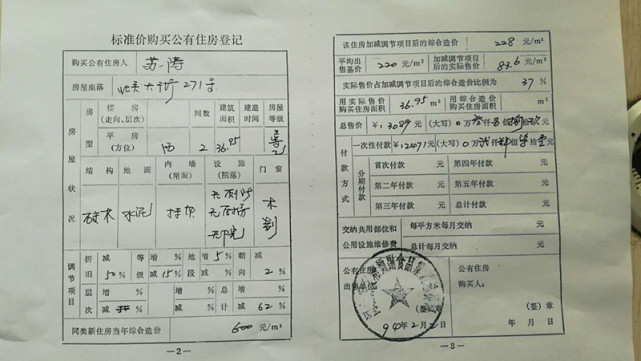 标准价购买公有住房登记
购买公有住房人 苏涛
房屋座落 大街271号
房型 楼房(走向,层次) 间数 建筑面积 建造时间 房屋等级
平房(方位) 西 2 36.95
房屋状况 结构 地面 内墙(屋面) 设施(院落) 门窗
砖木 水泥 无厕所 木
无阳光
调节项目 折旧 减 50% 等级 增 % 减 15% 地段 增 5% 减 % 朝向 减 2%
层次 增 % 减 % 增 % 减 % 总计 增 % 减 62%
同类新住房当年综合造价 600 元/m²
—2—
该住房加减调节项目后的综合造价 228 元/m²
平均出售基价 220 元/m² 加减调节项目后的实际售价 83.6 元/m²
实际售价占加减调节项目后的综合造价比例为 37%
用实际售价购买住房面积 36.95 m² 用综合造价购买住房面积 m²
总售价 ¥:3089元(大写)0万叁仟0佰捌拾玖
付款方式 一次性付款 ¥:2471元(大写)0万贰仟肆佰柒拾壹
分期付款 首次付款 第四年付款
第二年付款 第五年付款
第三年付款 总计付款
交纳共用部位和公用设施维修费 每平方米每月交纳 元
总计每月交纳 元
公有住房出售单位 公有住房购买人:
(签)章
94年2月2日 年月日
—3—